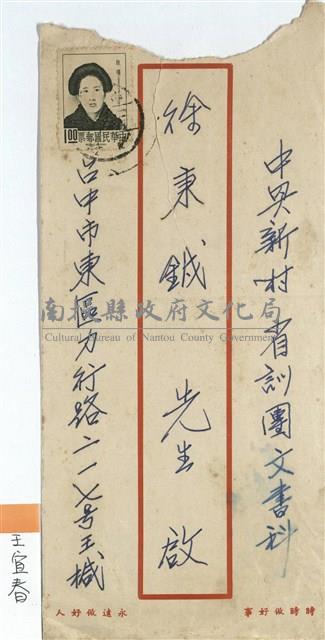 中興新村省訓團文書科
徐東鋮 先生 啟
台中市東區力行路二一七号王椷
中華民國郵票
1.00
南投縣政府文化局
Cultural Bureau of Nantou County Government
時時做好事
永遠做好人
王宜春